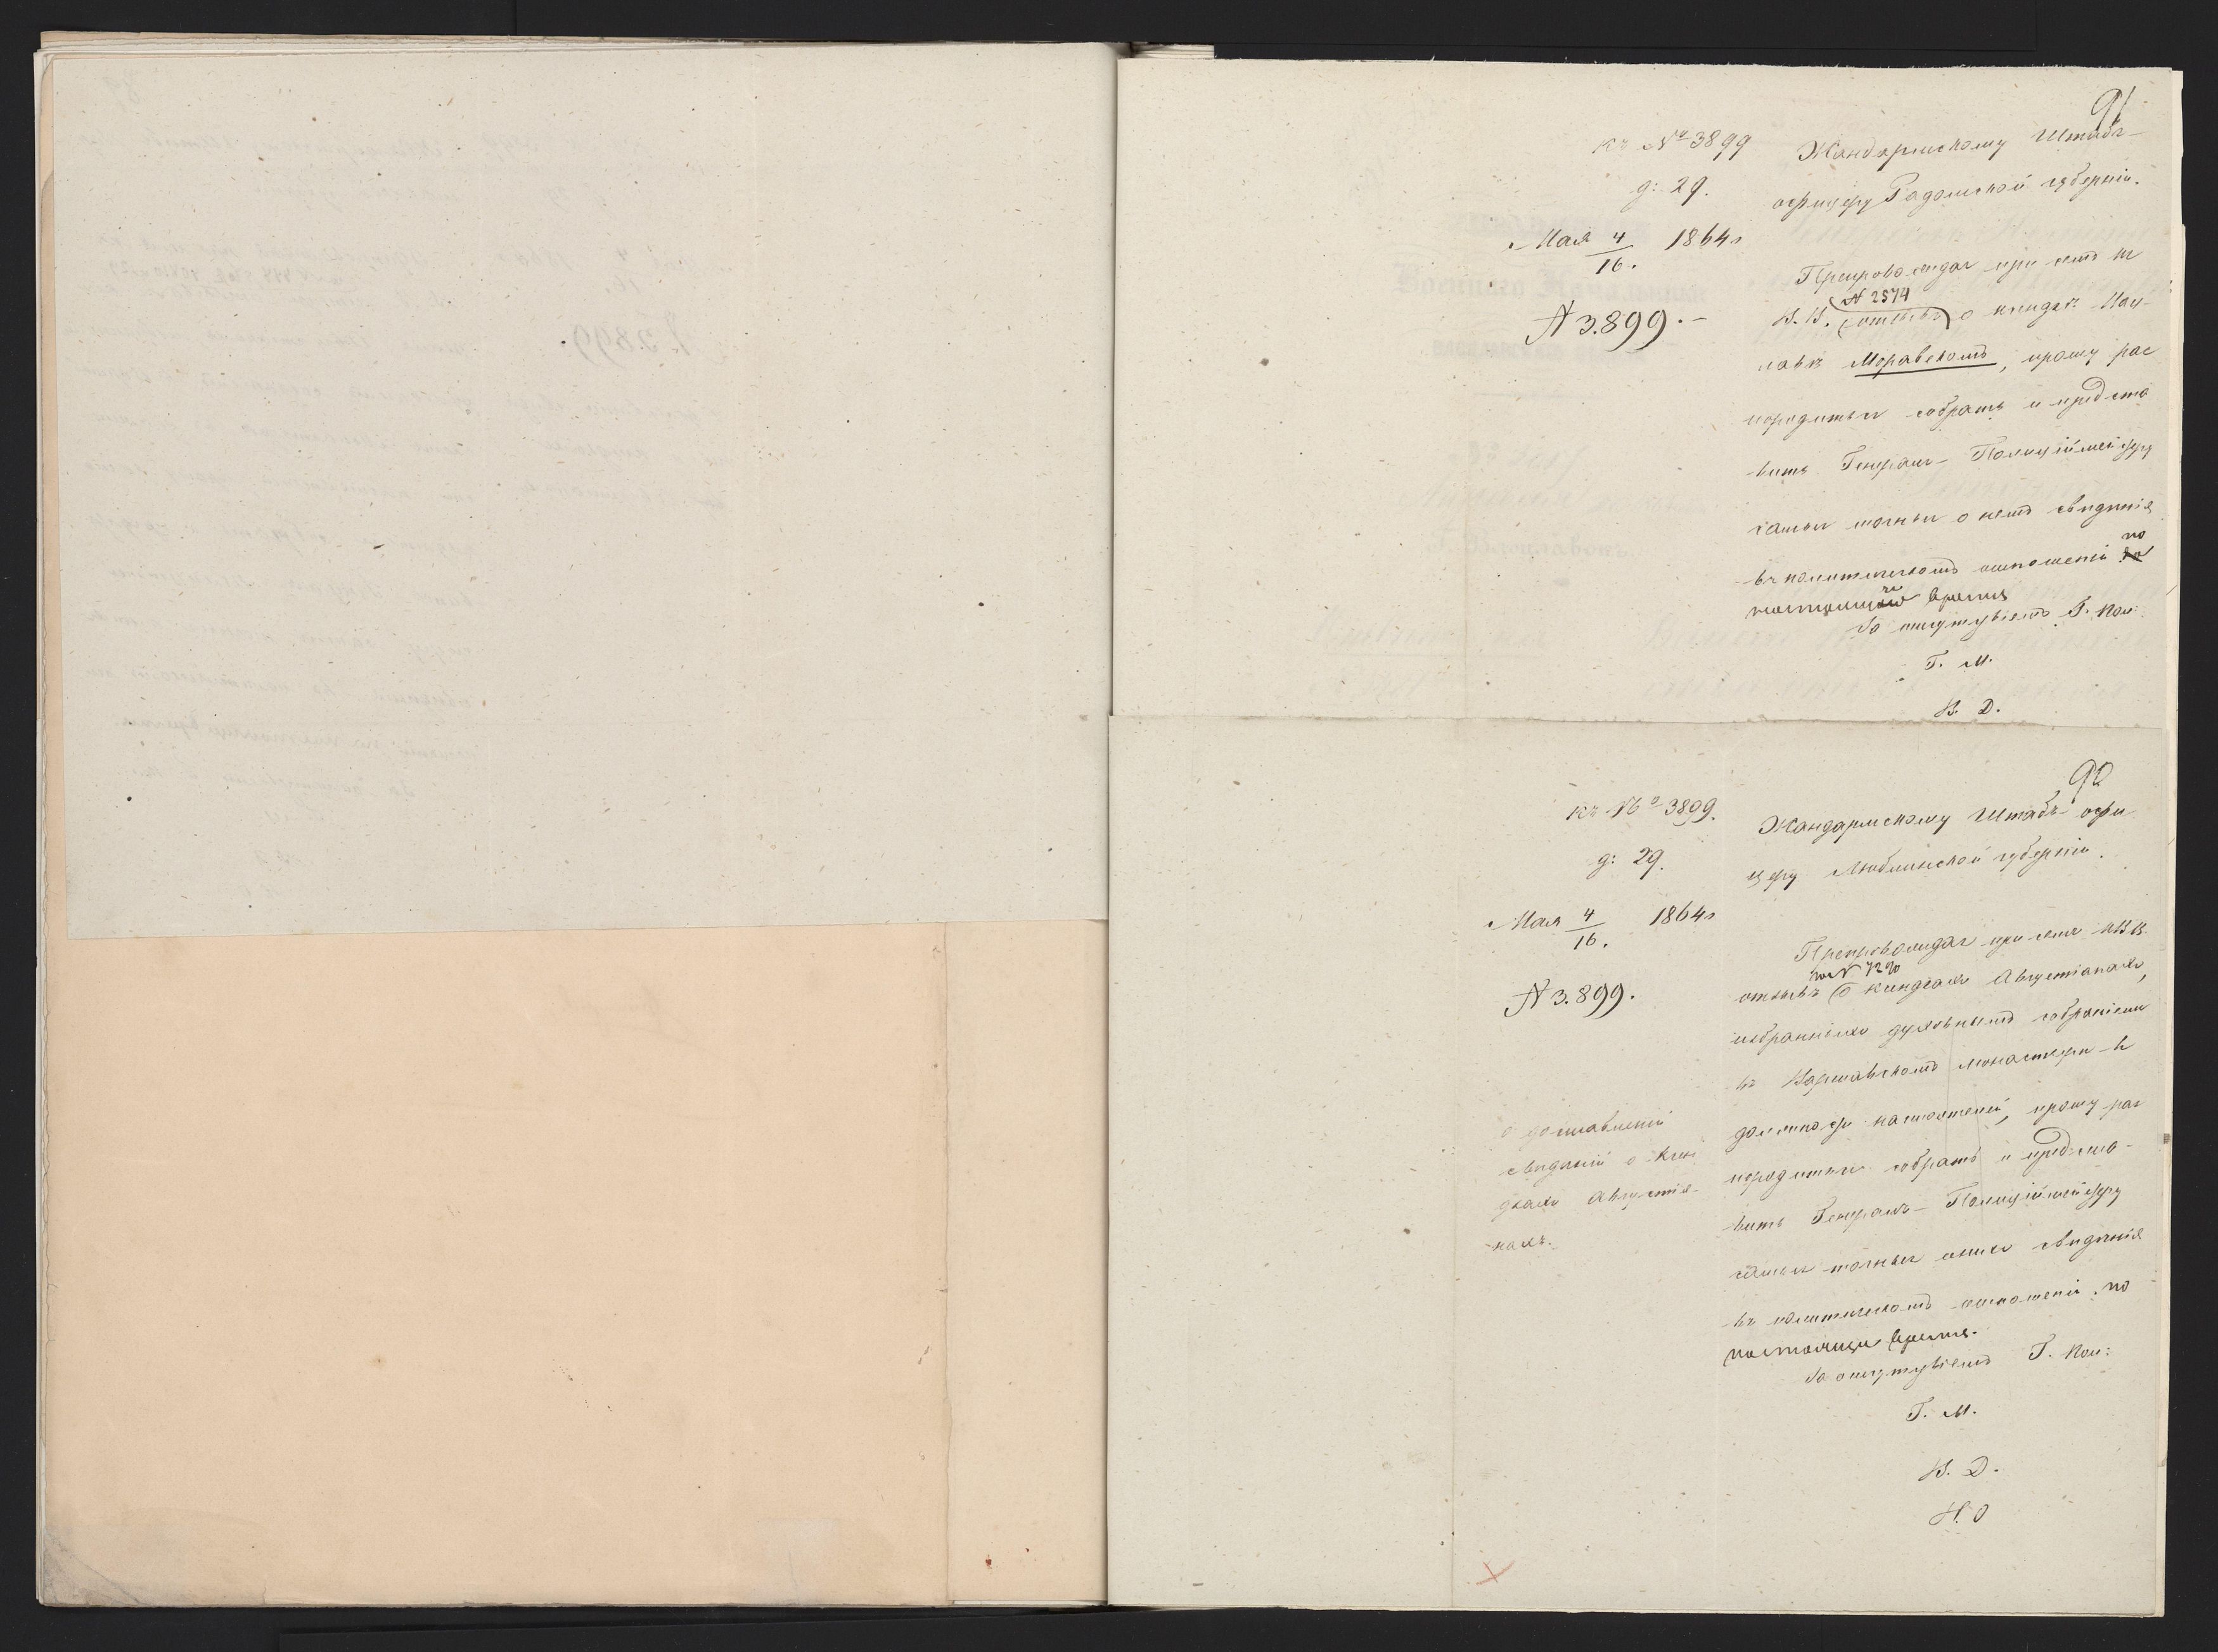 91
къ № 3899
д: 29.
Мая 4/16. 1864 г
№ 3.899.
Жандармскому Штабъ-
офицеру Радомской губерніи.
Препровождая при семъ
В. В. отзывъ № 2574 о ксендзѣ
Моравскомъ, прошу рас
порядиться собрать и предста
вить Генералъ-Полиціймейстеру
самыя точныя о немъ свѣдѣнія
въ политическомъ отношеніи по
настоящее время
За отсутствіемъ Г. Пол:
Г. М.
В. Д.
90
къ № 3899.
д: 29.
Мая 4/16. 1864 г
№ 3.899.
О доставленіи
свѣдѣній о ксен
дзахъ Августіа-
нахъ.
Жандармскому Штабъ-офи
церу Люблинской губерніи.
Препровождая при семъ къ В. В.
отзывъ за № 7290 о ксендзахъ Августіанахъ,
избранныхъ духовнымъ собраніемъ
въ Варшавскомъ монастыре въ
должность настоятелей, прошу рас
порядиться собрать и предста-
вить Генералъ-Полиціймейстеру
самыя точныя о нихъ свѣдѣнія
въ политическомъ отношеніи по
настоящее время.
За отсутствіемъ Г. Пол:
Г. М.
В. Д.
Н. О